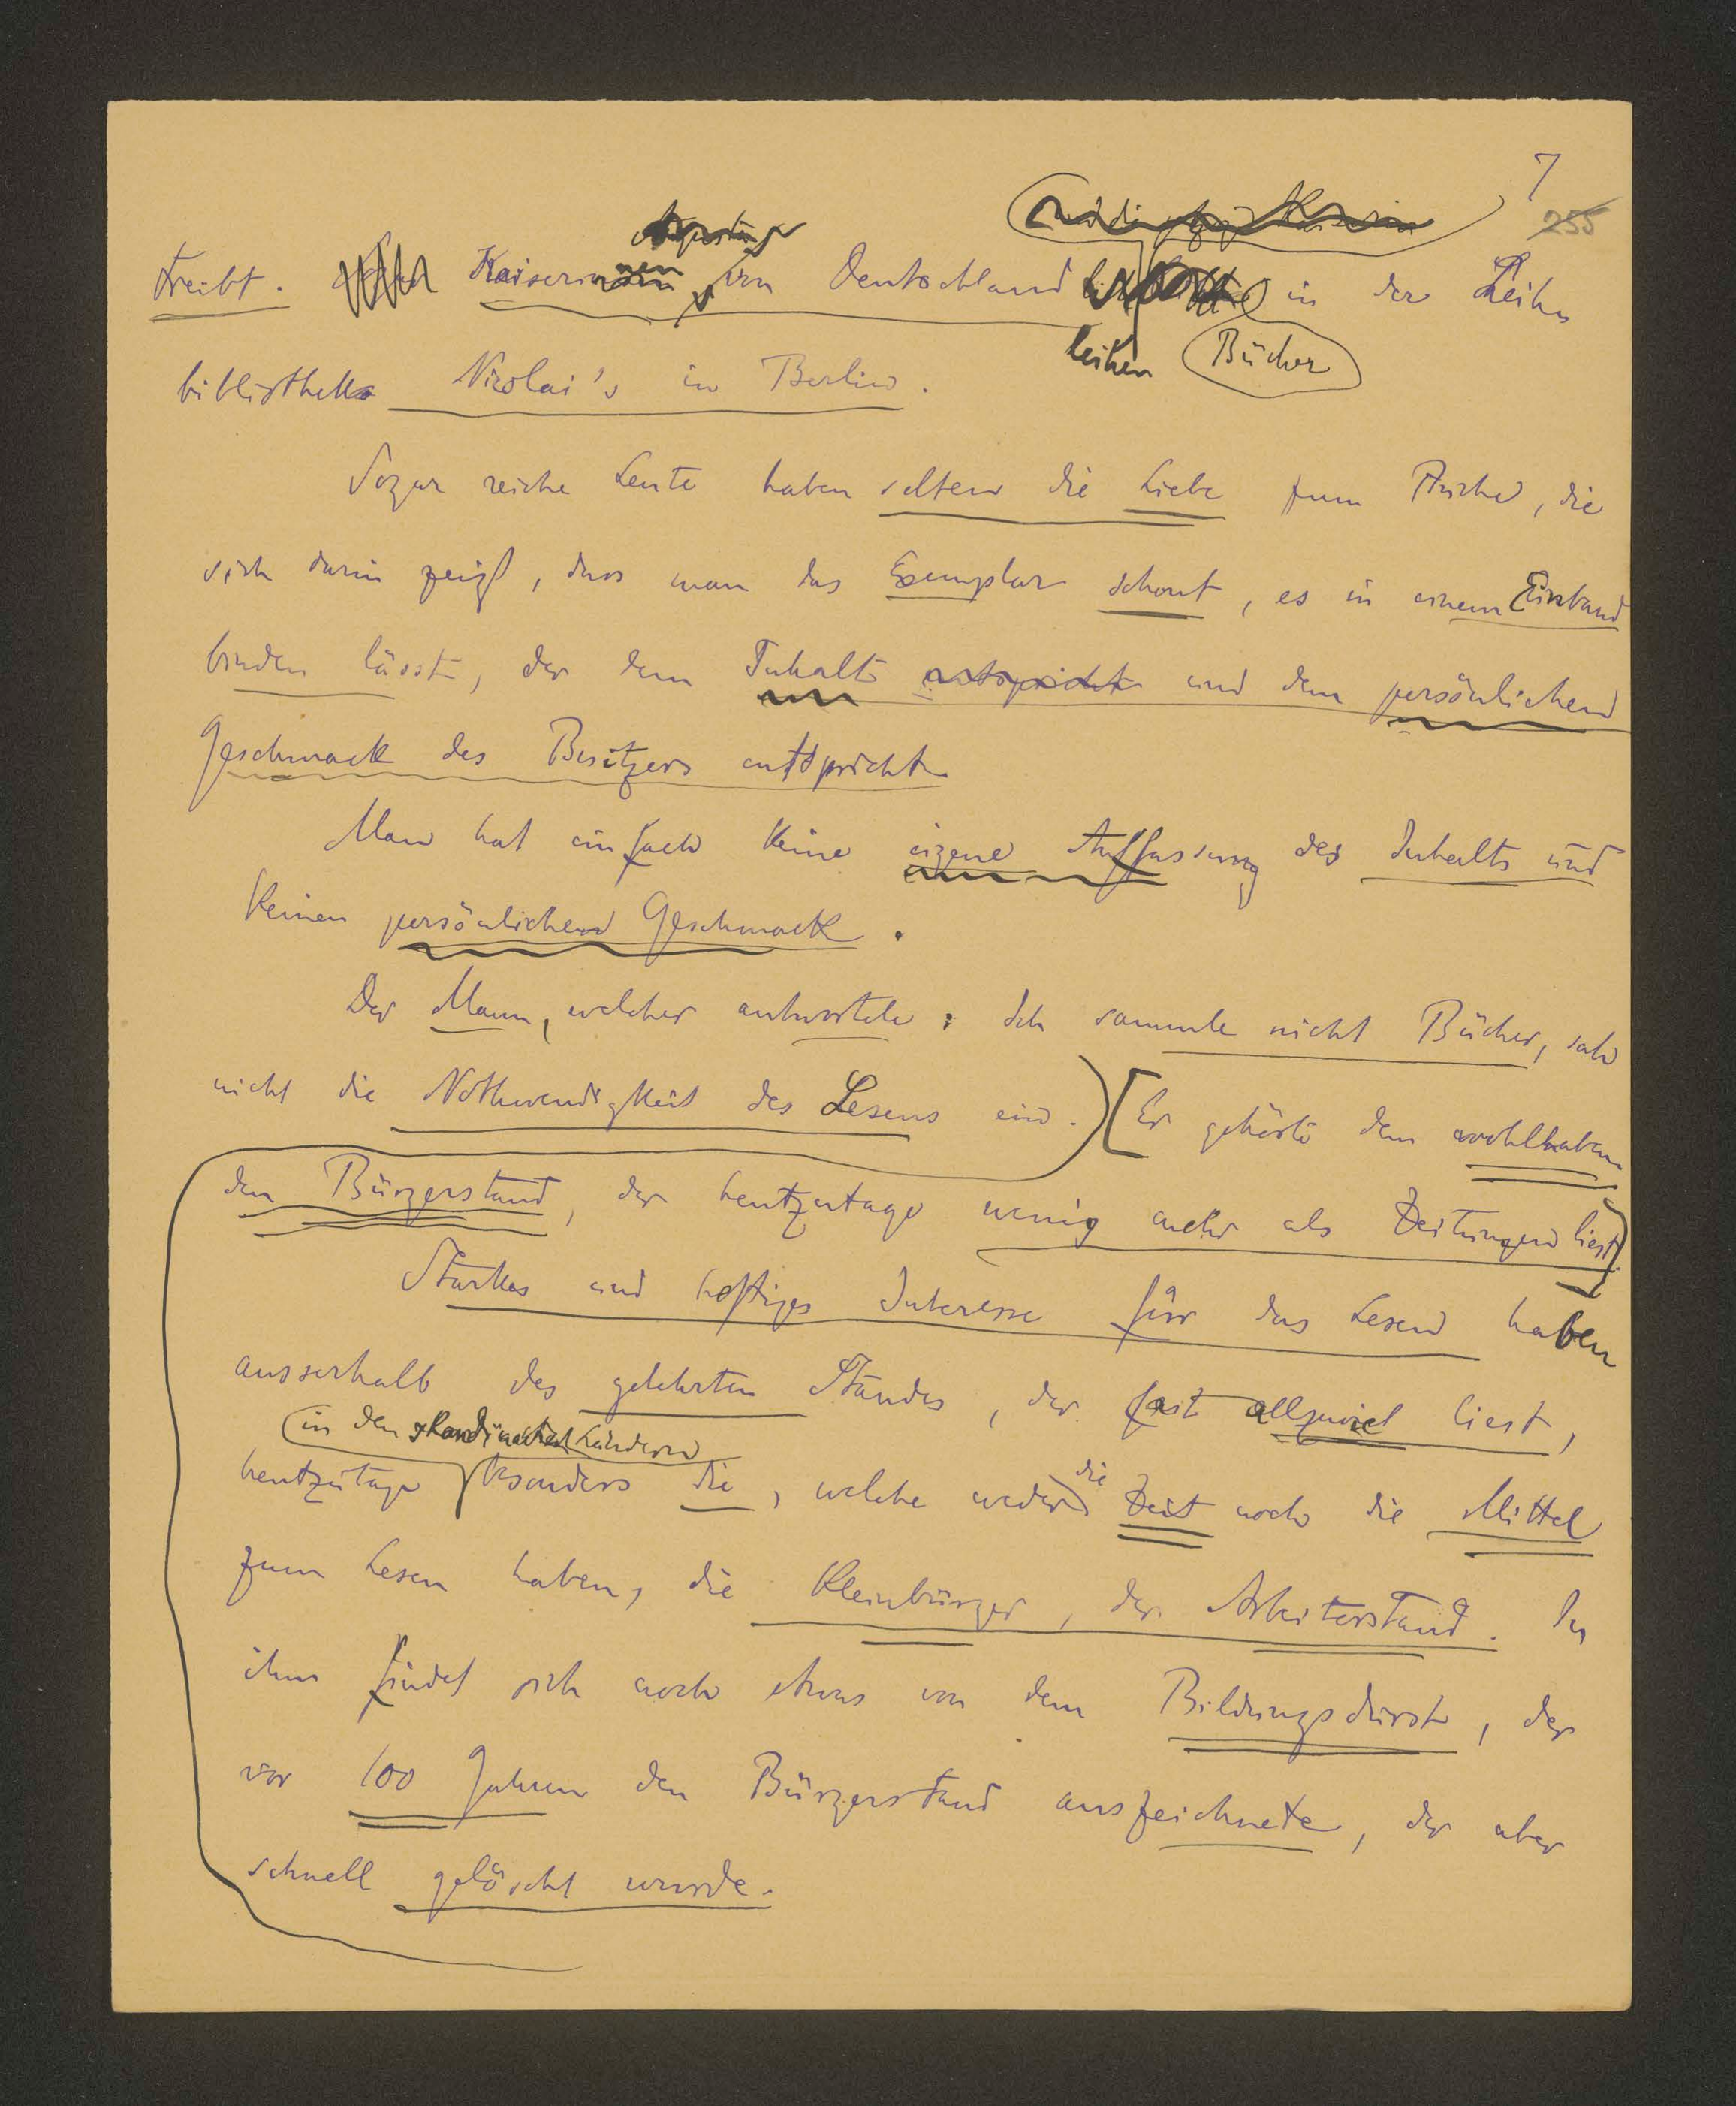 7
255
treibt. Kaiserinnen von Deutschland leihen Bücher in der Leih-
bibliothek Nicolai's in Berlin.
Sogar reiche Leute haben selten die Liebe zum Buche, die
sich darin zeigt, dass man das Exemplar schont, es in einem Einband
binden lässt, der dem Inhalt entspricht und dem persönlichen
Geschmack des Besitzers entspricht.
Man hat einfach keine eigene Auffassung des Inhalts und
keinen persönlichen Geschmack.
Der Mann, welcher antwortete: Ich sammle nicht Bücher, sah
nicht die Nothwendigkeit des Lesens ein. Er gehörte dem wohlhaben-
den Bürgerstand, der heutzutage wenig mehr als Zeitungen liest.
Starkes und heftiges Interesse für das Lesen haben
ausserhalb des gelehrten Standes, der fast allzuviel liest,
in den skandinavischen Ländern
heutzutage besonders die, welche weder die Zeit noch die Mittel
zum Lesen haben, die Kleinbürger, der Arbeiterstand. In
ihm findet sich noch etwas von dem Bildungsdurst, der
vor 100 Jahren den Bürgerstand auszeichnete, der aber
schnell gelöscht wurde.